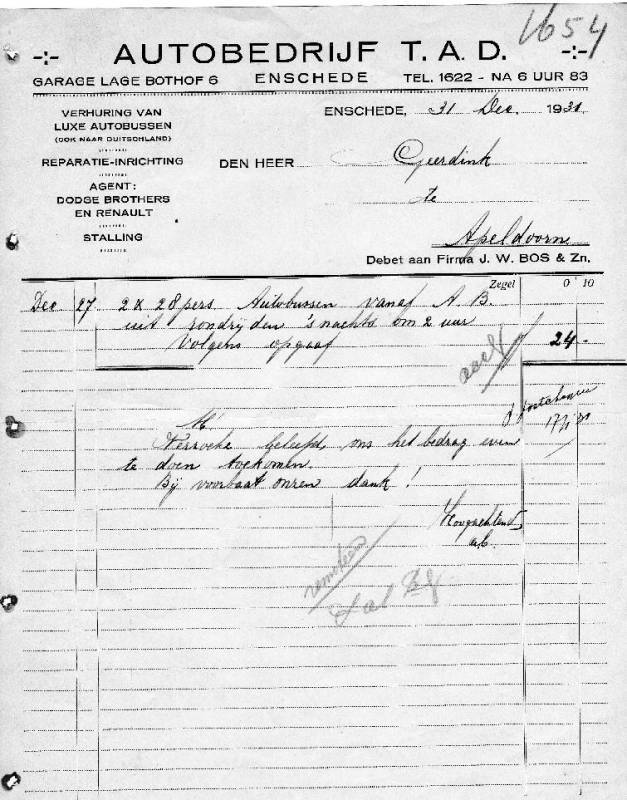 1654
-:- AUTOBEDRIJF T. A. D. -:-
GARAGE LAGE BOTHOF 6 ENSCHEDE TEL. 1622 - NA 6 UUR 83
VERHURING VAN
LUXE AUTOBUSSEN
(OOK NAAR DUITSCHLAND)
REPARATIE-INRICHTING
AGENT:
DODGE BROTHERS
EN RENAULT
STALLING
ENSCHEDE, 31 Dec. 1930
DEN HEER Geerdink
te
Apeldoorn
Debet aan Firma J. W. BOS & Zn.
Zegel 0 10
Dec 27 2 x 28 pers Autobussen vanaf A. B.
uit rondrijden 's nachts om 2 uur
Volgens opgaaf 24 -
M.
Verzoeke beleefd, ons het bedrag even
te doen toekomen.
Bij voorbaat onzen dank!
Hoogachtend,